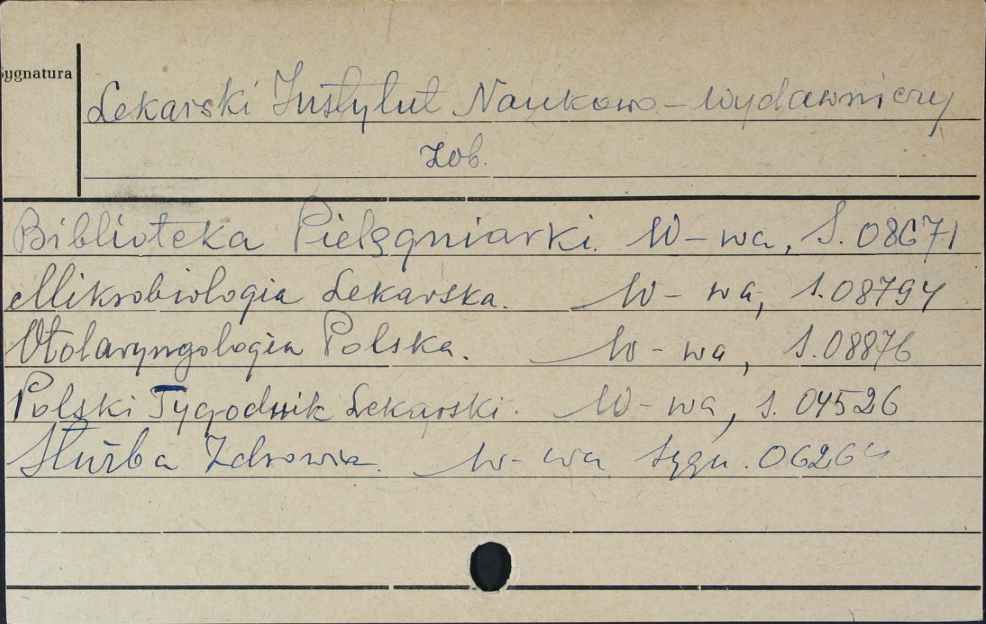 Sygnatura
Lekarski Instytut Naukowo-Wydawniczy
zob.
Biblioteka Pielęgniarki. W-wa, S. 08671
Mikrobiologia Lekarska. W-wa, S. 08794
Otolaryngologia Polska. W-wa, S. 08876
Polski Tygodnik Lekarski. W-wa, S. 04526
Służba Zdrowia. W-wa Sygn.